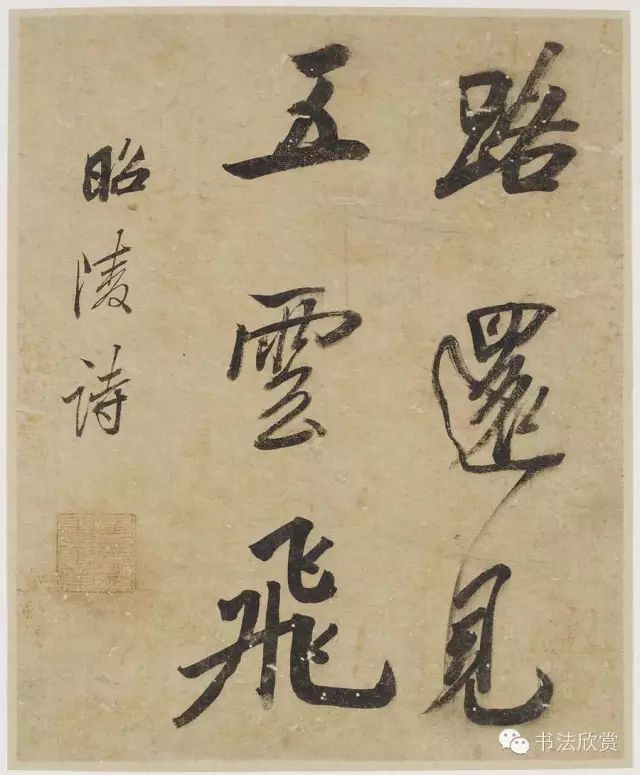 路還見
五雲飛
昭陵诗
书法欣赏